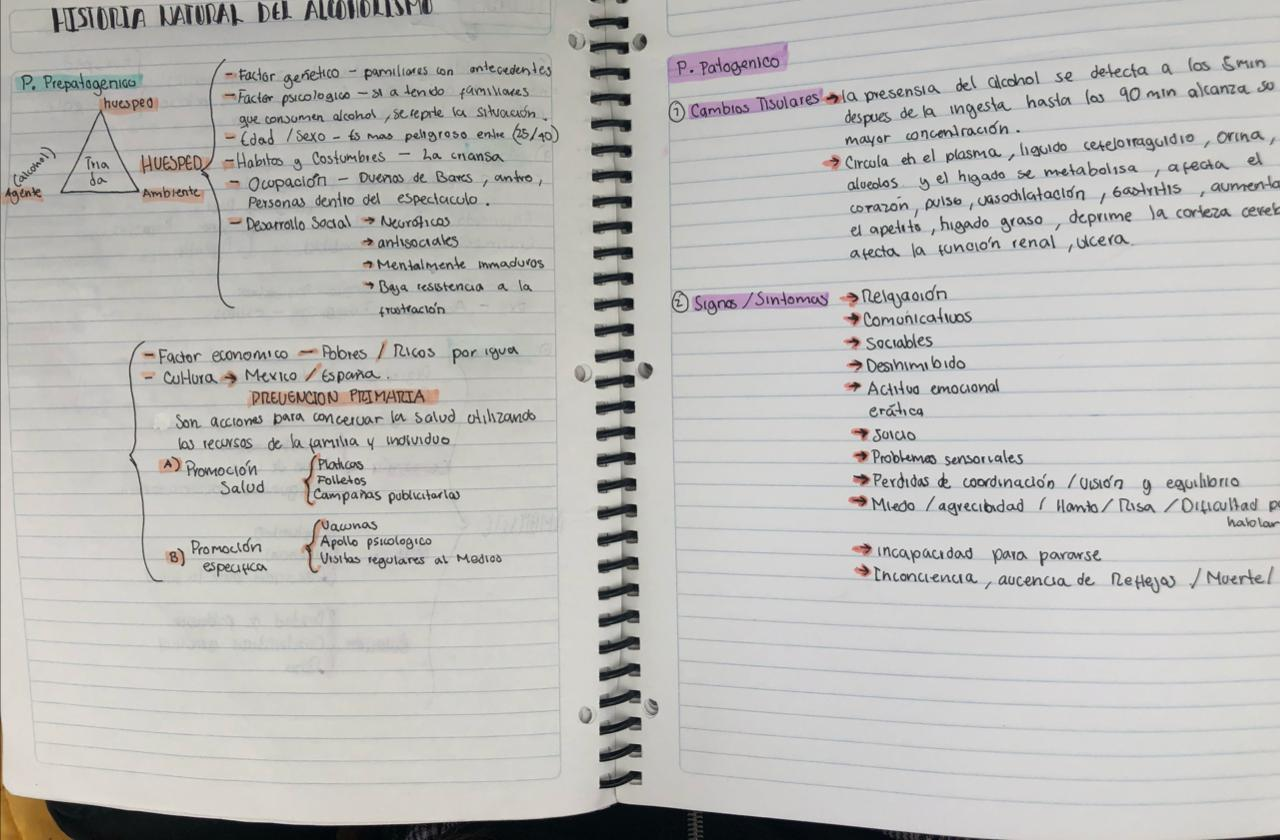 HISTORIA NATURAL DEL ALCOHOLISMO
P. Prepatogenico
huesped
Tria
da
(alcohol)
Agente
Ambiente
HUESPED
- Factor genetico - pamiliares con antecedentes
- Factor psicologico - si a tenido familiares
que consumen alcohol, se reprte la situación.
- Edad / Sexo - Es mas peligroso entre (25/40)
- Habitos y Costumbres - La criansa
- Ocupación - Dueños de Bares, antro,
Personas dentro del espectaculo.
- Desarrollo Social → Neuróticos
→ antisociales
→ Mentalmente inmaduros
→ Baja resistencia a la
frustración
- Factor economico - Pobres / Ricos por igua
- Cultura → Mexico / España.
PREVENCION PRIMARIA
Son acciones para concervar la salud utilizando
los recursos de la familia y individuo
A) Promoción
Salud
Platicas
Folletos
Campañas publicitarias
B) Promoción
especifica
Vacunas
Apollo psicologico
Visitas regulares al Medico
P. Patogenico
① Cambios Tisulares → la presensia del alcohol se detecta a los 5min
despues de la ingesta hasta los 90 min alcanza su
mayor concentración.
→ Circula en el plasma, liquido cefelorraquidio, orina,
alveolos y el higado se metabolisa, afecta el
corazón, pulso, vasodilatación, Gastritis, aumenta
el apetito, higado graso, deprime la corteza cereb
afecta la función renal, ulcera.
② Signos / Sintomas → Relajación
→ Comunicativos
→ Sociables
→ Desinhibido
→ Actitud emocional
erática
→ Suicio
→ Problemas sensoriales
→ Perdidas de coordinación / visión y equilibrio
→ Miedo / agrecibidad / llanto / Risa / Dificultad pa
hablar
→ incapacidad para pararse
→ Inconciencia, aucencia de Reflejos / Muerte /